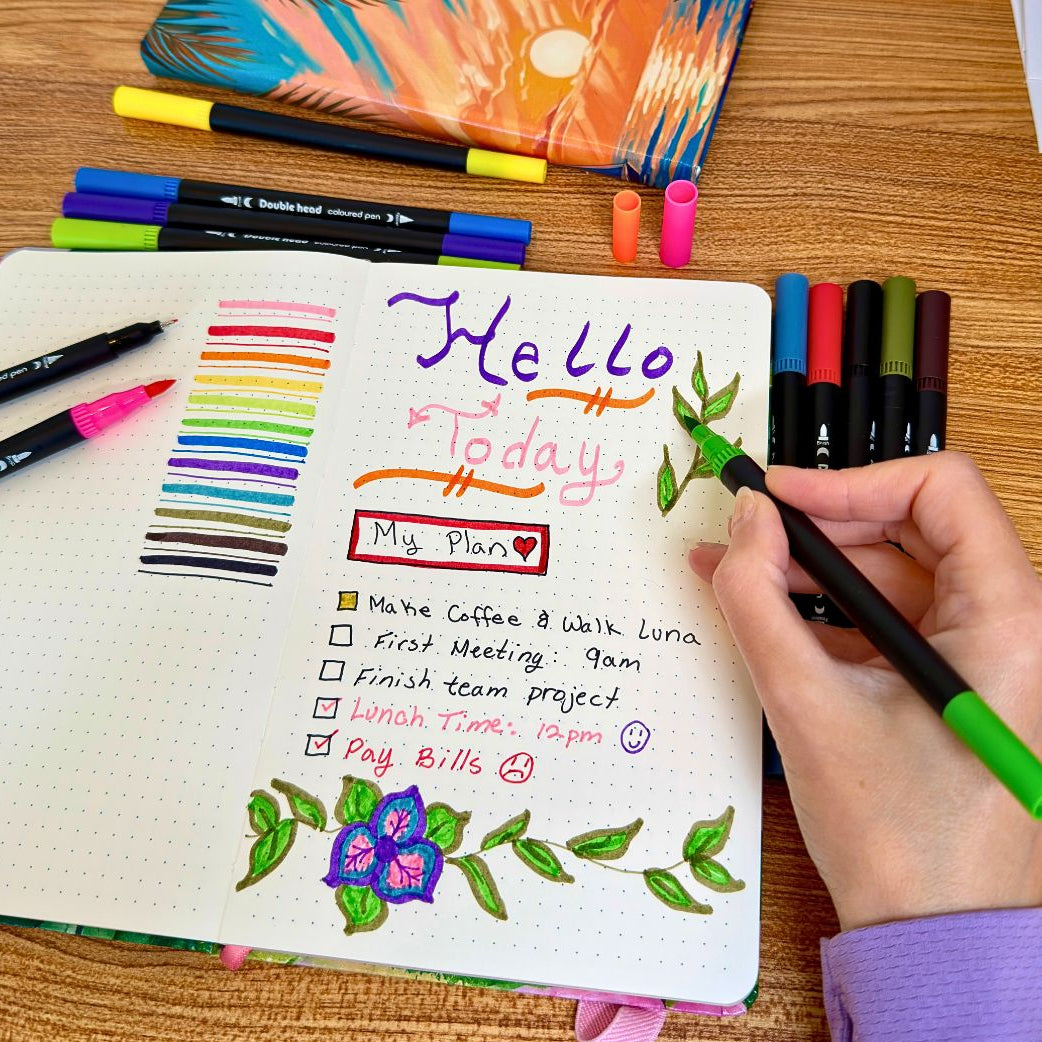 Double head coloured pen
Double head coloured pen
ed pen
Hello
Today
My Plan
Make Coffee & Walk Luna
First Meeting: 9am
Finish team project
Lunch Time: 12pm
Pay Bills